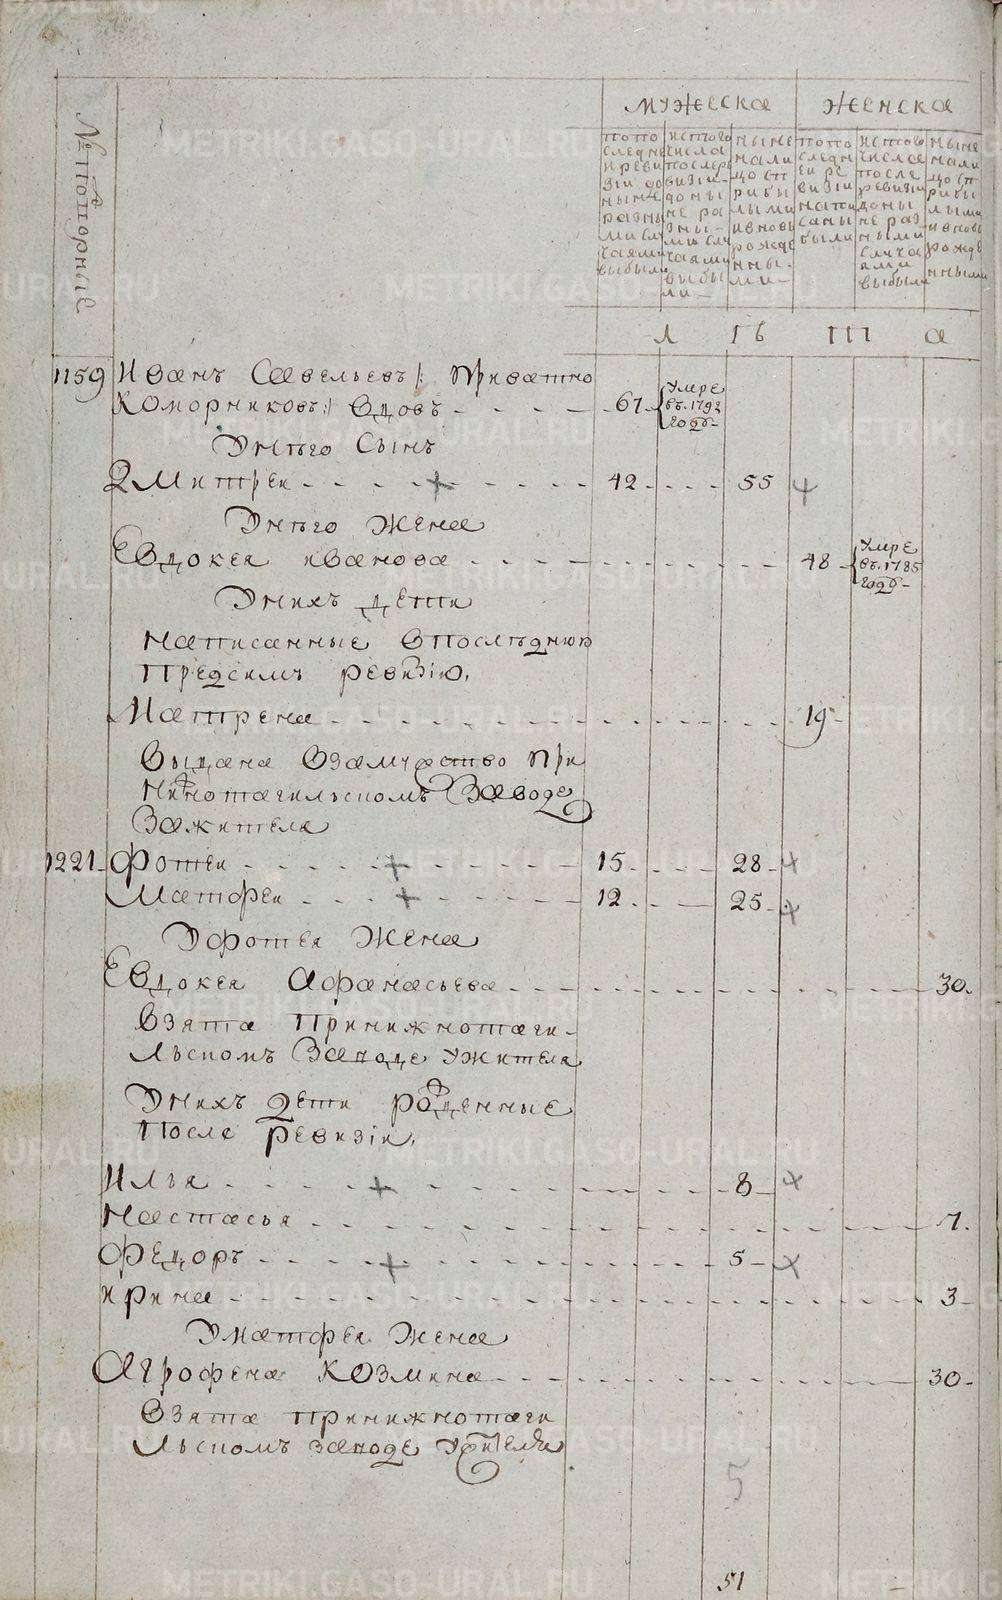 № Попорные
мужеска
женска
по по
следне
й реви
зіи до
ныне
разны
ми слу
чаями
выбыли
ис того
числа
после ре
визіи
до ны
не ра
зны
ми слу
чаями
выбы
ли
ныне
нали
цо съ п
рибы
лыми
и вновь
рожде
нны
ми
по по
следн
ей ре
визіи
напи
саны
были
ис того
числа
после
ревизіи
до ны
не раз
ными
случа
ями
выбыли
ныне
нали
цо съ п
рибы
лыми
и вновь
рожде
нными
л
Iв
III
а
1159 Иванъ Савельевъ /: приватно
Коморниковъ:/ вдовъ 67 умре въ 1792 годѣ
У него сынъ
Дмитреи 42 55
У него жена
Евдокея иванова 48 умре въ 1785 годѣ
У них дети
написанные впоследнюю
предсимъ ревизію,
Матрена 19
выдана взамужство при
нижнотагильскомъ заводе
за жителя
1221 Фотеи 15 28
Матфеи 12 25
У Фотея жена
Евдокея Афанасьева 30
взята при нижнотаги
льскомъ заводе у жителя
У них дети рожденные
после ревизіи,
Илья 8
Настасья 7
Федоръ 5
ирина 3
У матфея жена
Агрофена козмина 30
взята при нижнотаги
льскомъ заводе у жителя
5
51
METRIKI.GASO-URAL.RU